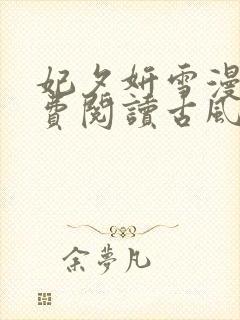 妃夕妍雪漫
費閱讀古風
余夢凡